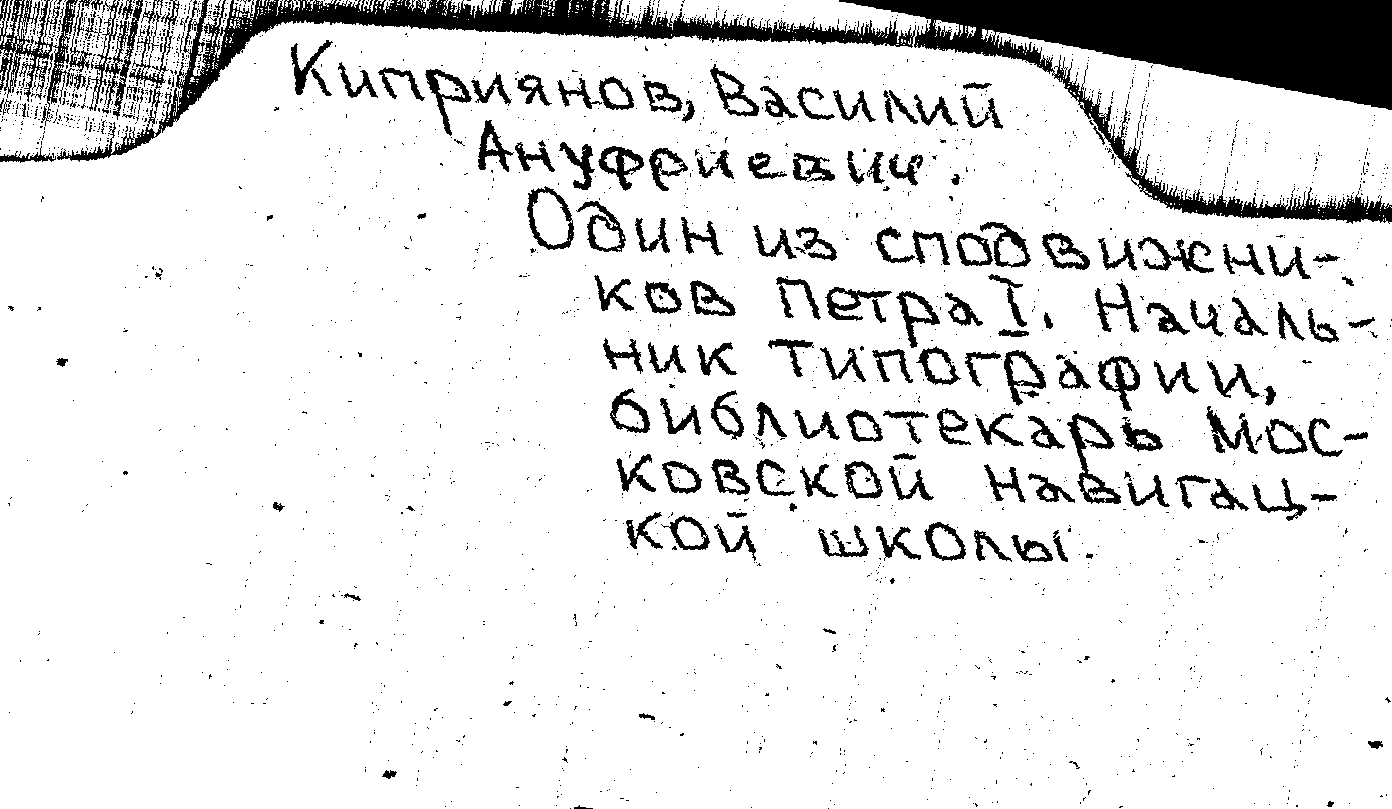 Киприянов, Василий
Ануфриевич.
Один из сподвижни-
ков Петра I. Началь-
ник типографии,
библиотекарь Мос-
ковской навигац-
кой школы.